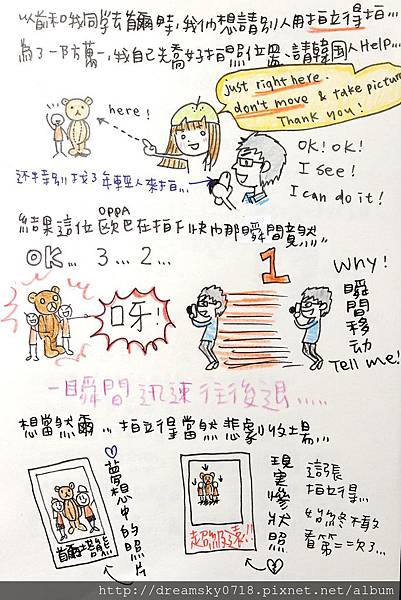 以前和我同學去首爾時,我們想請別人用拍立得拍...
為了一防萬一,我自己先喬好拍照位置、請韓國人Help...
here!
just right here.
don't move & take picture
Thank you!
還特別找了年輕人來拍...
OK! OK!
I see!
I can do it!
OPPA
結果這位歐巴在拍下快門那瞬間竟然〃
OK... 3... 2...
1
呀!
Why!
瞬間移动
Tell me!
一瞬間迅速往後退.....
想當然爾...拍立得當然悲劇收場...
首爾塔熊
夢想中的照片
超級遠!!
現実慘狀照
這張
拍立得...
始終不敢
看第二次了...
http://dreamsky0718.pixnet.net/album